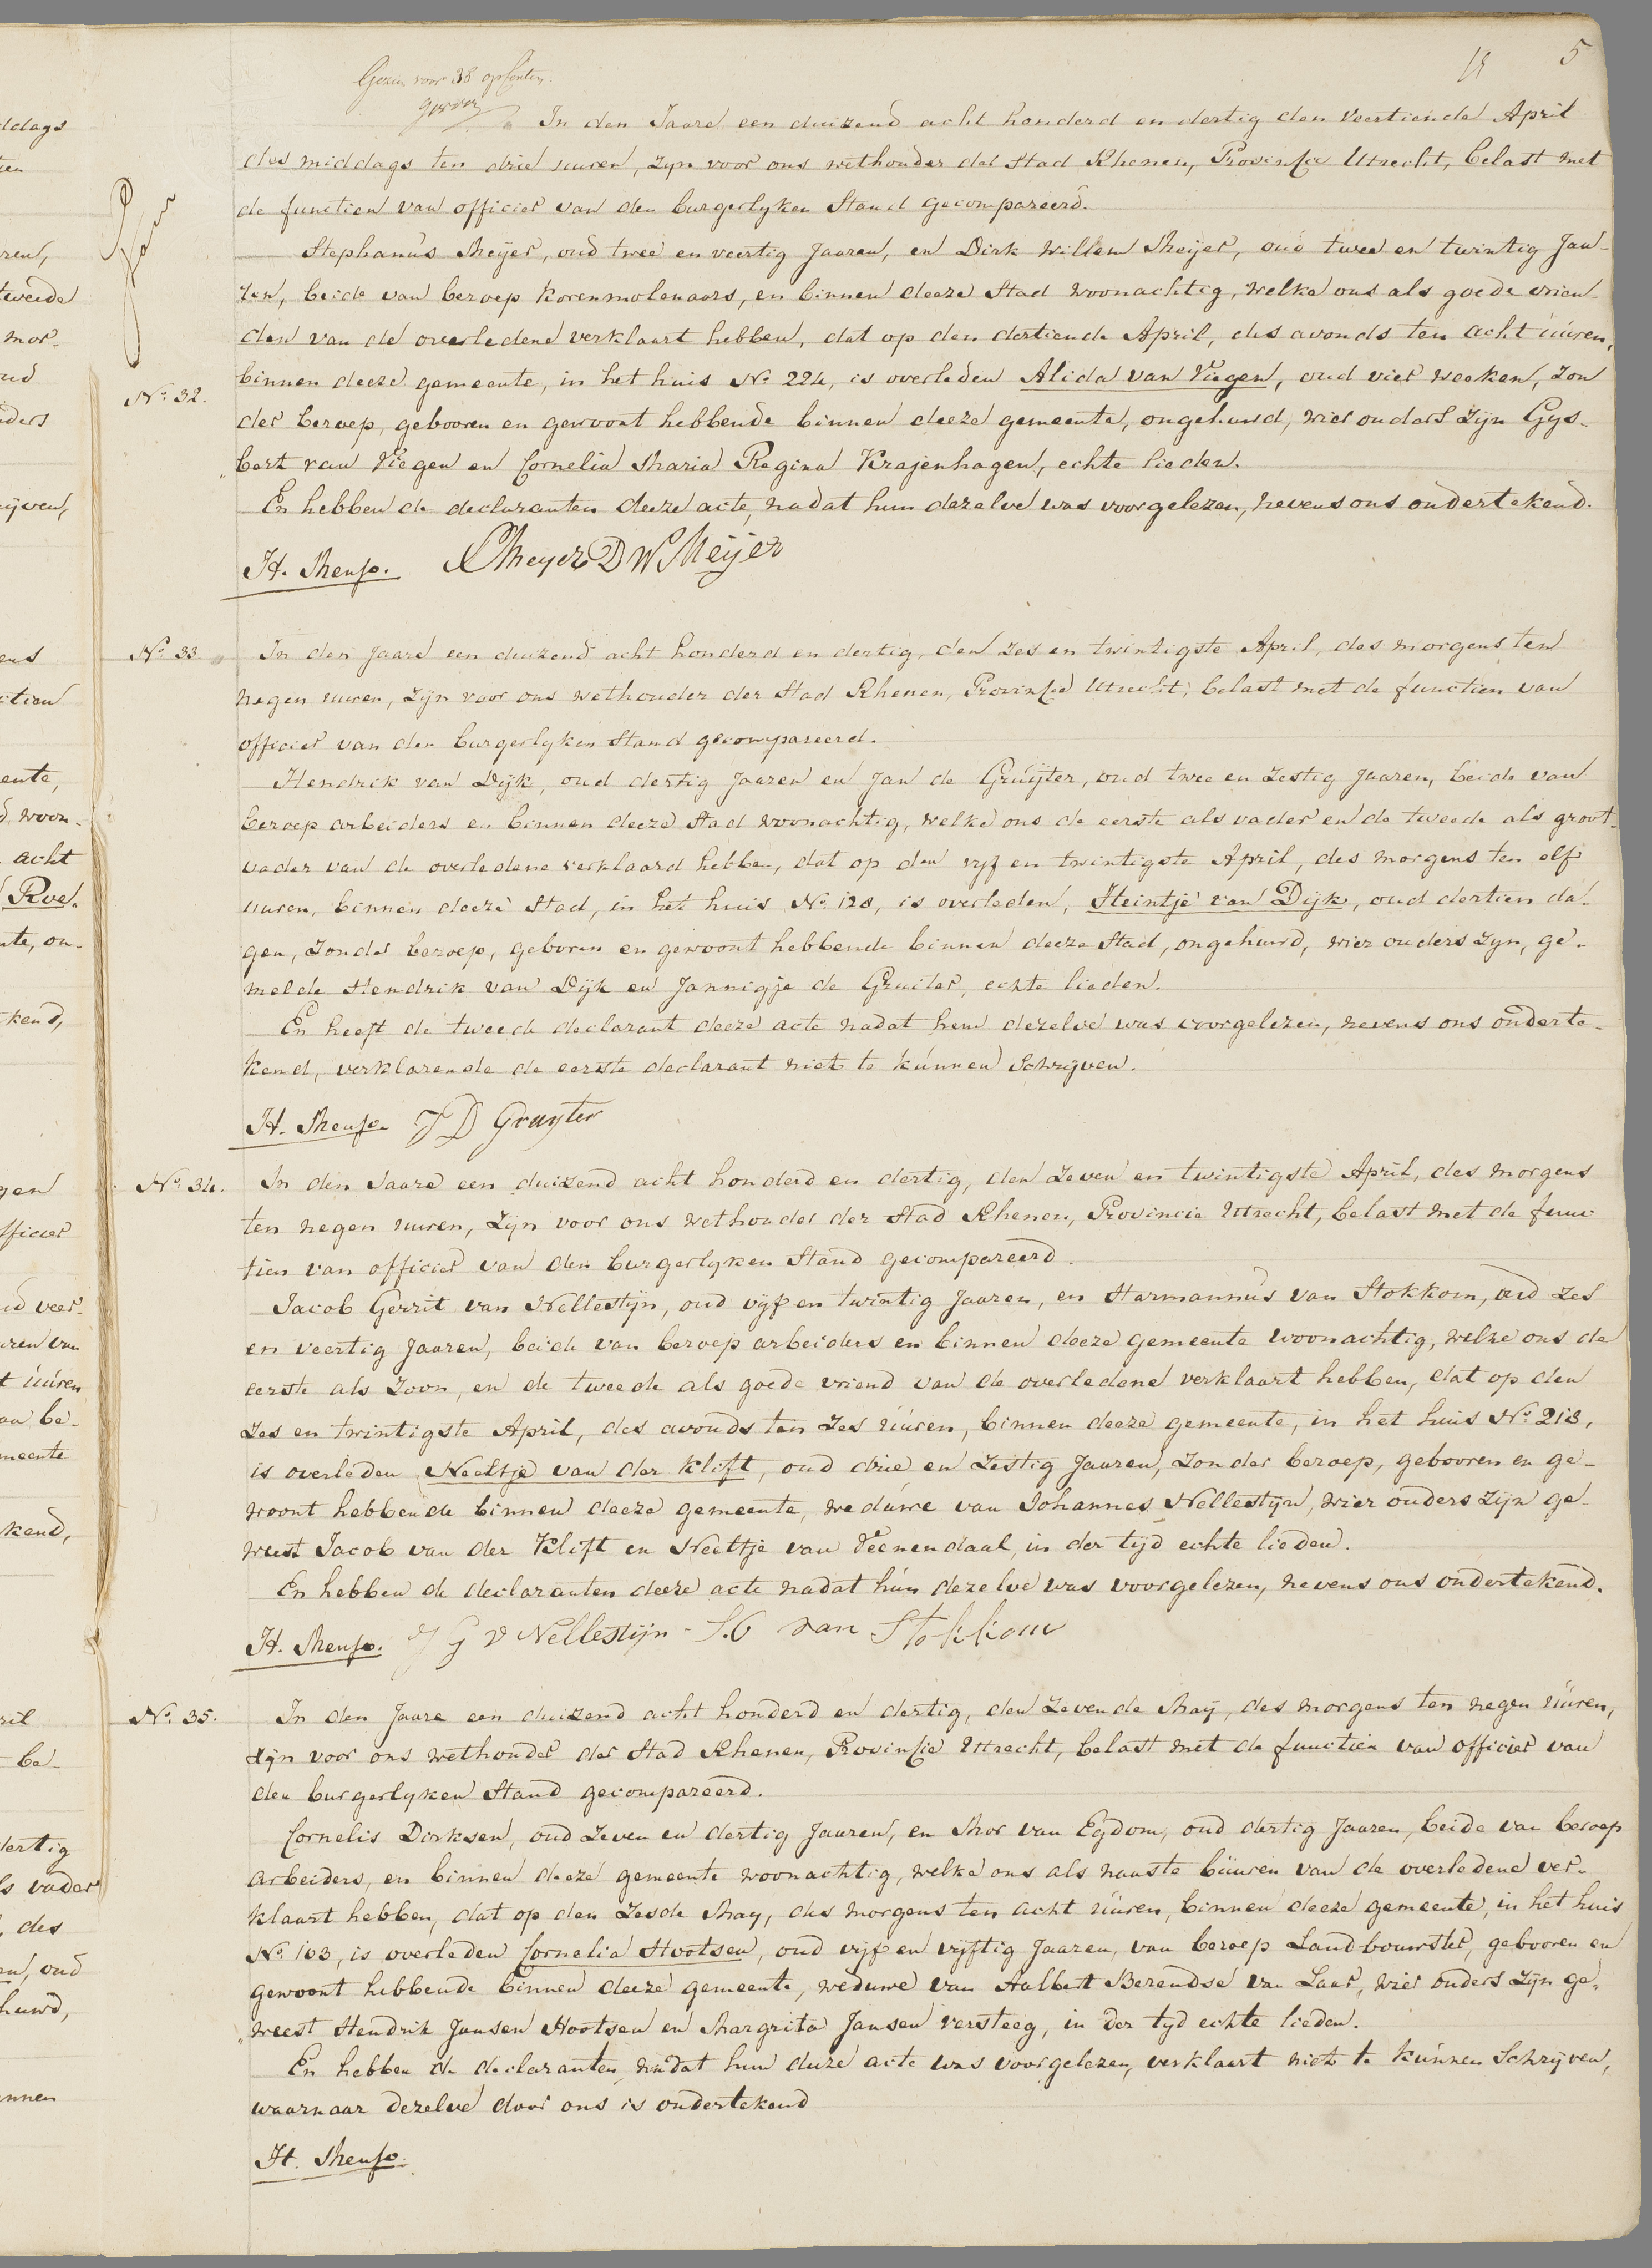 5
Gezien voor 38
In den Jaare een duizend acht honderd en dertig den veertiende April
des middags ten drie uuren, zyn voor ons wethouder der Stad Rhenen, Provinsie Utrecht, belast met
de functien van officier van den burgerlyken Stand gecompareerd.
Stephanus Meijer, oud twee en veertig Jaaren, en Dirk Willem Meijer, oud twee en twintig Jaa-
ren, beide van beroep korenmolenaars, en binnen deeze Stad woonachtig, welke ons als goede vrien-
den van de overledene verklaart hebben, dat op den dertiende April, des avonds ten acht uuren,
No. 32. binnen deeze gemeente, in het huis No. 224, is overleden Alida van Viegen, oud vier weeken, zon
der beroep, gebooren en gewoont hebbende binnen deeze gemeente, ongehuwd, wier ouders zyn Gys-
bert van Viegen en Cornelia Maria Regina Krajenhagen, echte lieden.
En hebben de declaranten deeze acte, nadat hun dezelve was voorgelezen, nevens ons ondertekend.
H. Menso. S Meyer D W Meijer
No. 33 In den Jaare een duizend acht honderd en dertig, den zes en twintigste April, des morgens ten
negen uuren, zyn voor ons wethouder der Stad Rhenen, Provinsie Utrecht, belast met de functien van
officier van den burgerlyken Stand gecompareerd.
Hendrick van Dijk, oud dertig Jaaren en Jan de Gruijter, oud twee en zestig Jaaren, beide van
beroep arbeiders en binnen deeze Stad woonachtig, welke ons de eerste als vader en de tweede als groot-
vader van de overledene verklaard hebben, dat op den vyf en twintigste April, des morgens ten elf
uuren, binnen deeze Stad, in het huis No. 128, is overleden, Heintje van Dijk, oud dertien da-
gen, zonder beroep, geboren en gewoont hebbende binnen deeze Stad, ongehuwd, wier ouders zyn, ge-
melde Hendrik van Dijk en Jannigje de Gruiter, echte lieden.
En heeft de tweede declarant deeze acte nadat hem dezelve was voorgelezen, nevens ons onderte-
kend, verklarende de eerste declarant niet te kunnen Schryven.
H. Menso. J D Gruyter
No. 34. In den Jaare een duizend acht honderd en dertig, den zeven en twintigste April, des morgens
ten negen uuren, zyn voor ons wethouder der Stad Rhenen, Provincie Utrecht, belast met de func
tien van officier van den burgerlyken Stand gecompareerd.
Jacob Gerrit van Nellestijn, oud vijf en twintig Jaaren, en Harmannus van Stokkom, oud zes
en veertig Jaaren, beide van beroep arbeiders en binnen deeze gemeente woonachtig, welke ons de
eerste als zoon, en de tweede als goede vriend van de overledene verklaart hebben, dat op den
zes en twintigste April, des avonds ten zes uuren, binnen deeze gemeente, in het huis No. 213,
is overleden Neeltje van der Klift, oud drie en zestig Jaaren, zonder beroep, gebooren en ge-
woont hebbende binnen deeze gemeente, weduwe van Johannes Nellestyn, wier ouders zyn ge-
weest Jacob van der Klift en Neeltje van Veenendaal, in der tijd echte lieden.
En hebben de declaranten deeze acte nadat hun dezelve was voorgelezen, nevens ons ondertekend.
H. Menso. J G V Nellestijn van Stokkom
No. 35. In den Jaare een duizend acht honderd en dertig, den zevende May, des morgens ten negen uuren,
zyn voor ons wethouder der Stad Rhenen, Provinsie Utrecht, belast met de functien van officier van
den burgerlyken Stand gecompareerd.
Cornelis Dirksen, oud zeven en dertig Jaaren, en Mor van Egdom, oud dertig Jaaren, beide van beroep
arbeiders, en binnen deeze gemeente woonachtig, welke ons als naaste buuren van de overledene ver-
klaart hebben, dat op den zesde May, des morgens ten acht uuren, binnen deeze gemeente, in het huis
No. 103, is overleden Cornelia Hootsen, oud vijf en vijftig Jaaren, van beroep Landbouwster, gebooren en
gewoont hebbende binnen deeze gemeente, weduwe van Aalbert Berendse van Laar, wier ouders zyn ge-
weest Hendrik Jansen Hootsen en Margrita Jansen Versteeg, in der tyd echte lieden.
En hebben de declaranten, nadat hun deeze acte was voorgelezen, verklaart niet te kunnen Schryven,
waarnaar dezelve door ons is ondertekend
H. Menso.